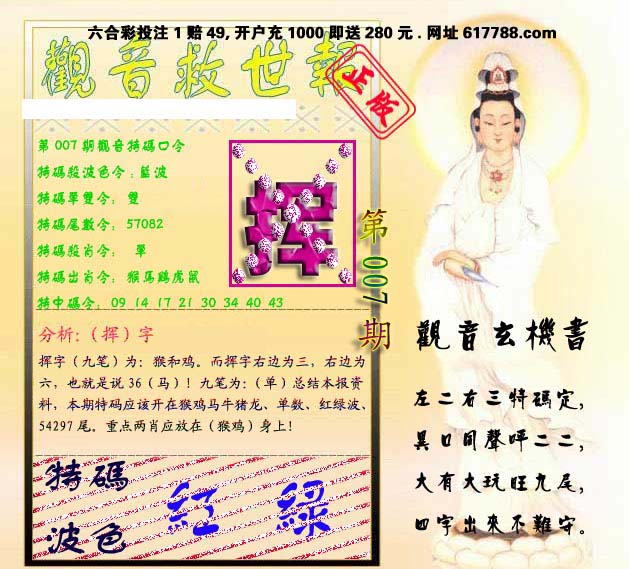 六合彩投注1赔49,开户充1000即送280元.网址617788.com
觀音救世報
正版
第007期觀音特碼口令
特碼殺波色令:藍波
特碼單雙令: 雙
特碼尾數令: 57082
特碼殺肖令: 單
特碼出肖令: 猴馬鷄虎鼠
特中碼令: 09 14 17 21 30 34 40 43
挥
第007期
分析:(挥)字
挥字(九笔)为:猴和鸡。而挥字右边为三,右边为
六,也就是说36(马)!九笔为:(单)总结本报资
料,本期特码应该开在猴鸡马牛猪龙、单数、红绿波、
54297尾。重点两肖应放在(猴鸡)身上!
特碼
波色
紅 綠
觀音玄機書
左二右三特碼定,
異口同聲呼二二,
大有大玩旺九尾,
四字出來不難守。